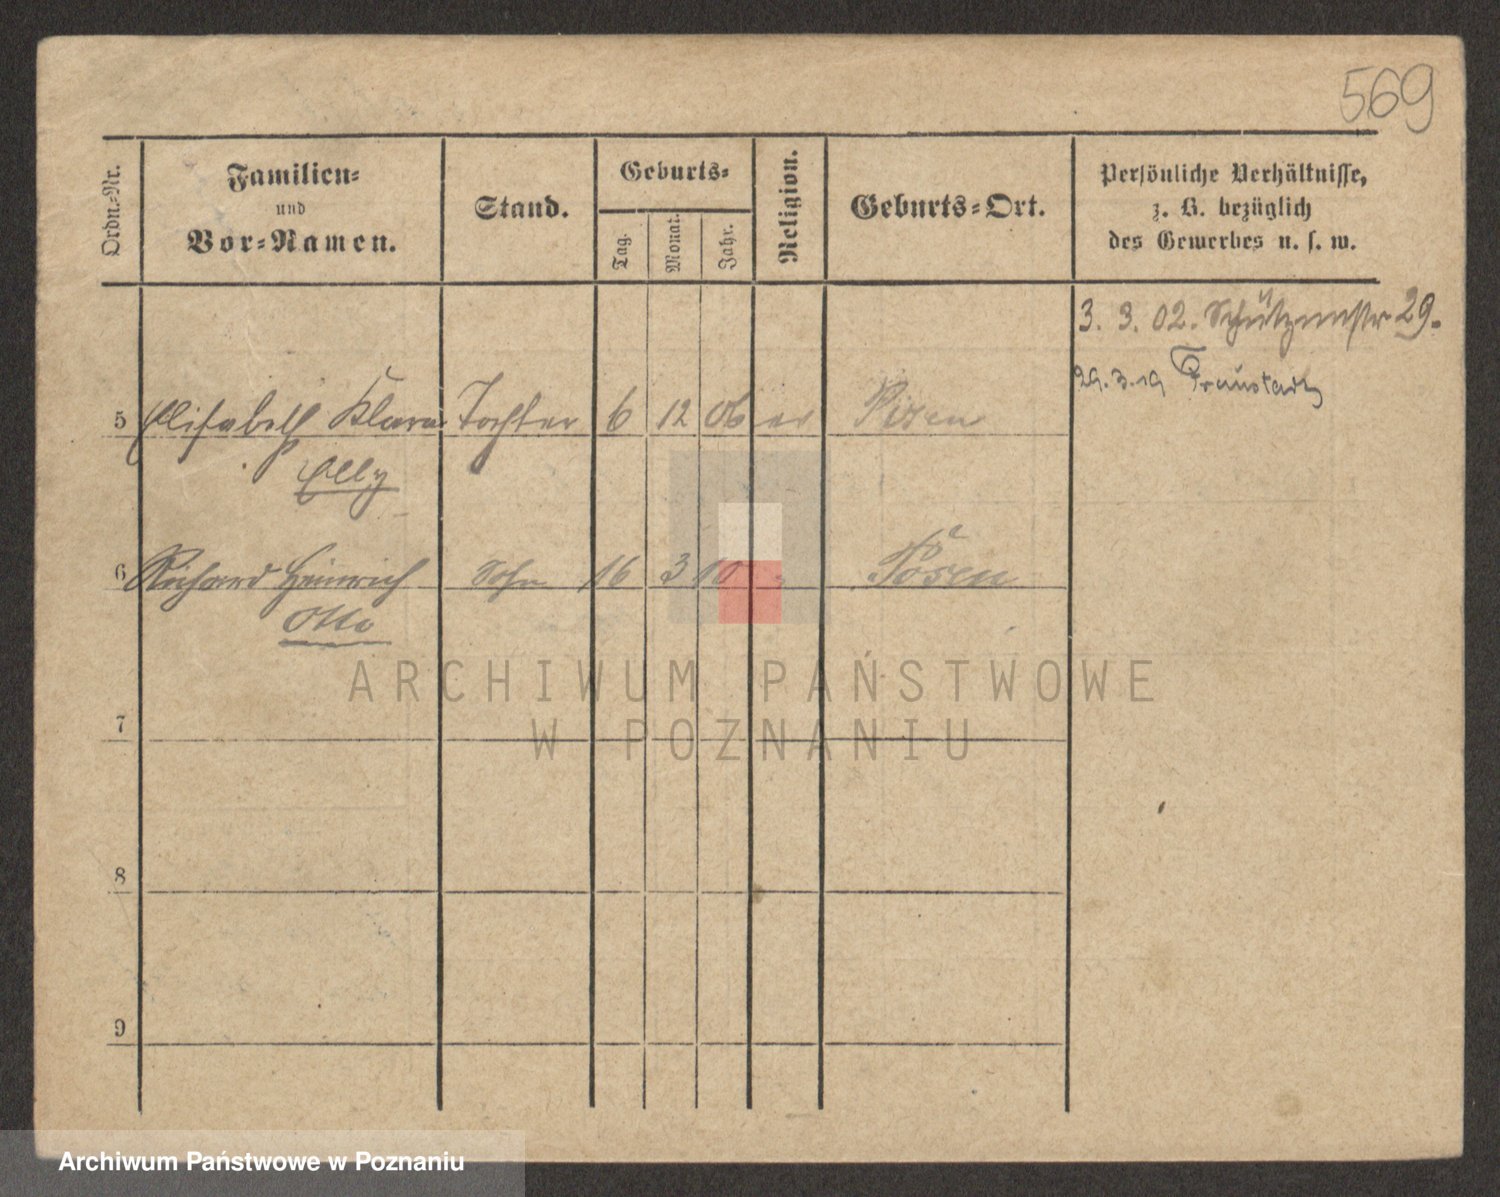 569
Ordn.-Nr.
Familien-
und
Vor-Namen.
Stand.
Geburts-
Tag.
Monat.
Jahr.
Religion.
Geburts-Ort.
Persönliche Verhältnisse,
z. B. bezüglich
des Gewerbes u. s. w.
3. 3. 02. Schützenstr 29.
29. 3. 19 Fraustadt
5 Elisabeth Klara Tochter 6 12 06 ev Posen
Elly
6 Richard Heinrich Sohn 16 3 10 " Posen
Otto
7
8
9
ARCHIWUM PAŃSTWOWE
W POZNANIU
Archiwum Państwowe w Poznaniu